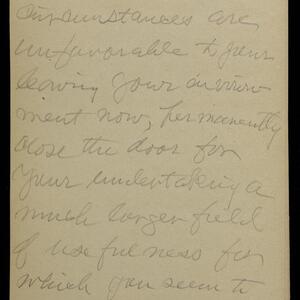 circumstances are
unfavorable to your
leaving your environ
ment now, permanently
close the door for
your undertaking a
much larger field
of usefulness for
which you seem to